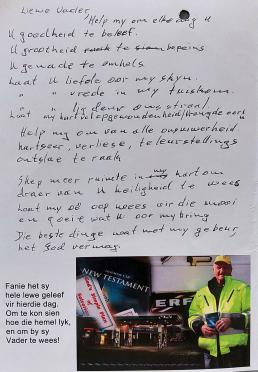 Liewe Vader,
Help my om elke dag u
U goedheid te beleef.
U grootheid te bepeins
U genade te omhels.
Laat U liefde oor my skyn.
" " vrede in my tuiskom.
" "
Laat my hart vol opgewondenheid/vreugde oor u
Help my om van alle onsuiwerheid
hartseer, verliese, teleurstellings
ontslae te raak
Skep meer ruimte in my hart om
draer van U heiligheid te wees
Laat my oë oop wees vir die mooi
en goeie wat U oor my bring
Die beste dinge wat met my gebeur,
het God vermag.
Fanie het sy
hele lewe geleef
vir hierdie dag.
Om te kon sien
hoe die hemel lyk,
en om by sy
Vader te wees!
NEW TESTAMENT